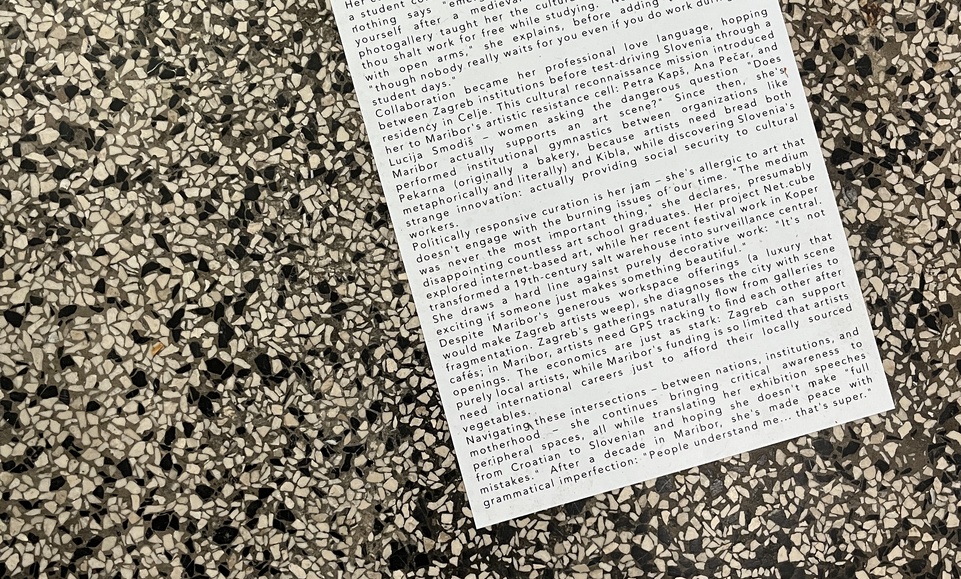 a student
nothing says
yourself after a medieval
photogallery taught her the
thou shalt work for free while studying.
with open arms." she explains, before adding
"though nobody really waits for you even if you do work
student days."
Collaboration became her professional love language, hopping
between Zagreb institutions before test-driving Slovenia through a
residency in Celje. This cultural reconnaissance mission introduced
her to Maribor's artistic resistance cell: Petra Kapš, Ana Pečar, and
Lucija Smodiš – women asking the dangerous question "Does
Maribor actually supports an art scene?" Since then, she's
performed institutional gymnastics between organizations like
Pekarna (originally a bakery, because artists need bread both
metaphorically and literally) and Kibla, while discovering Slovenia's
strange innovation: actually providing social security to cultural
workers.
Politically responsive curation is her jam – she's allergic to art that
doesn't engage with the burning issues of our time. "The medium
was never the most important thing," she declares, presumably
disappointing countless art school graduates. Her project Net.cube
explored internet-based art, while her recent festival work in Koper
ransformed a 19th-century salt warehouse into surveillance central.
She draws a hard line against purely decorative work: "It's not
exciting if someone just makes something beautiful."
Despite Maribor's generous workspace offerings (a luxury that
would make Zagreb artists weep), she diagnoses the city with scene
fragmentation. Zagreb's gatherings naturally flow from galleries to
cafés; in Maribor, artists need GPS tracking to find each other after
openings. The economics are just as stark: Zagreb can support
purely local artists, while Maribor's funding is so limited that artists
need international careers just to afford their locally sourced
vegetables.
Navigating these intersections – between nations, institutions, and
motherhood – she continues bringing critical awareness to
peripheral spaces, all while translating her exhibition speeches
from Croatian to Slovenian and hoping she doesn't make "full
mistakes." After a decade in Maribor, she's made peace with
grammatical imperfection: "People understand me... that's super."